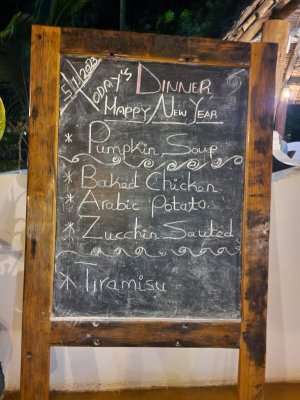 5/1/2023
Today's Dinner
Happy New Year
* Pumpkin Soup
* Baked Chicken
* Arabic Potato
* Zucchin Sauted
* Tiramisu